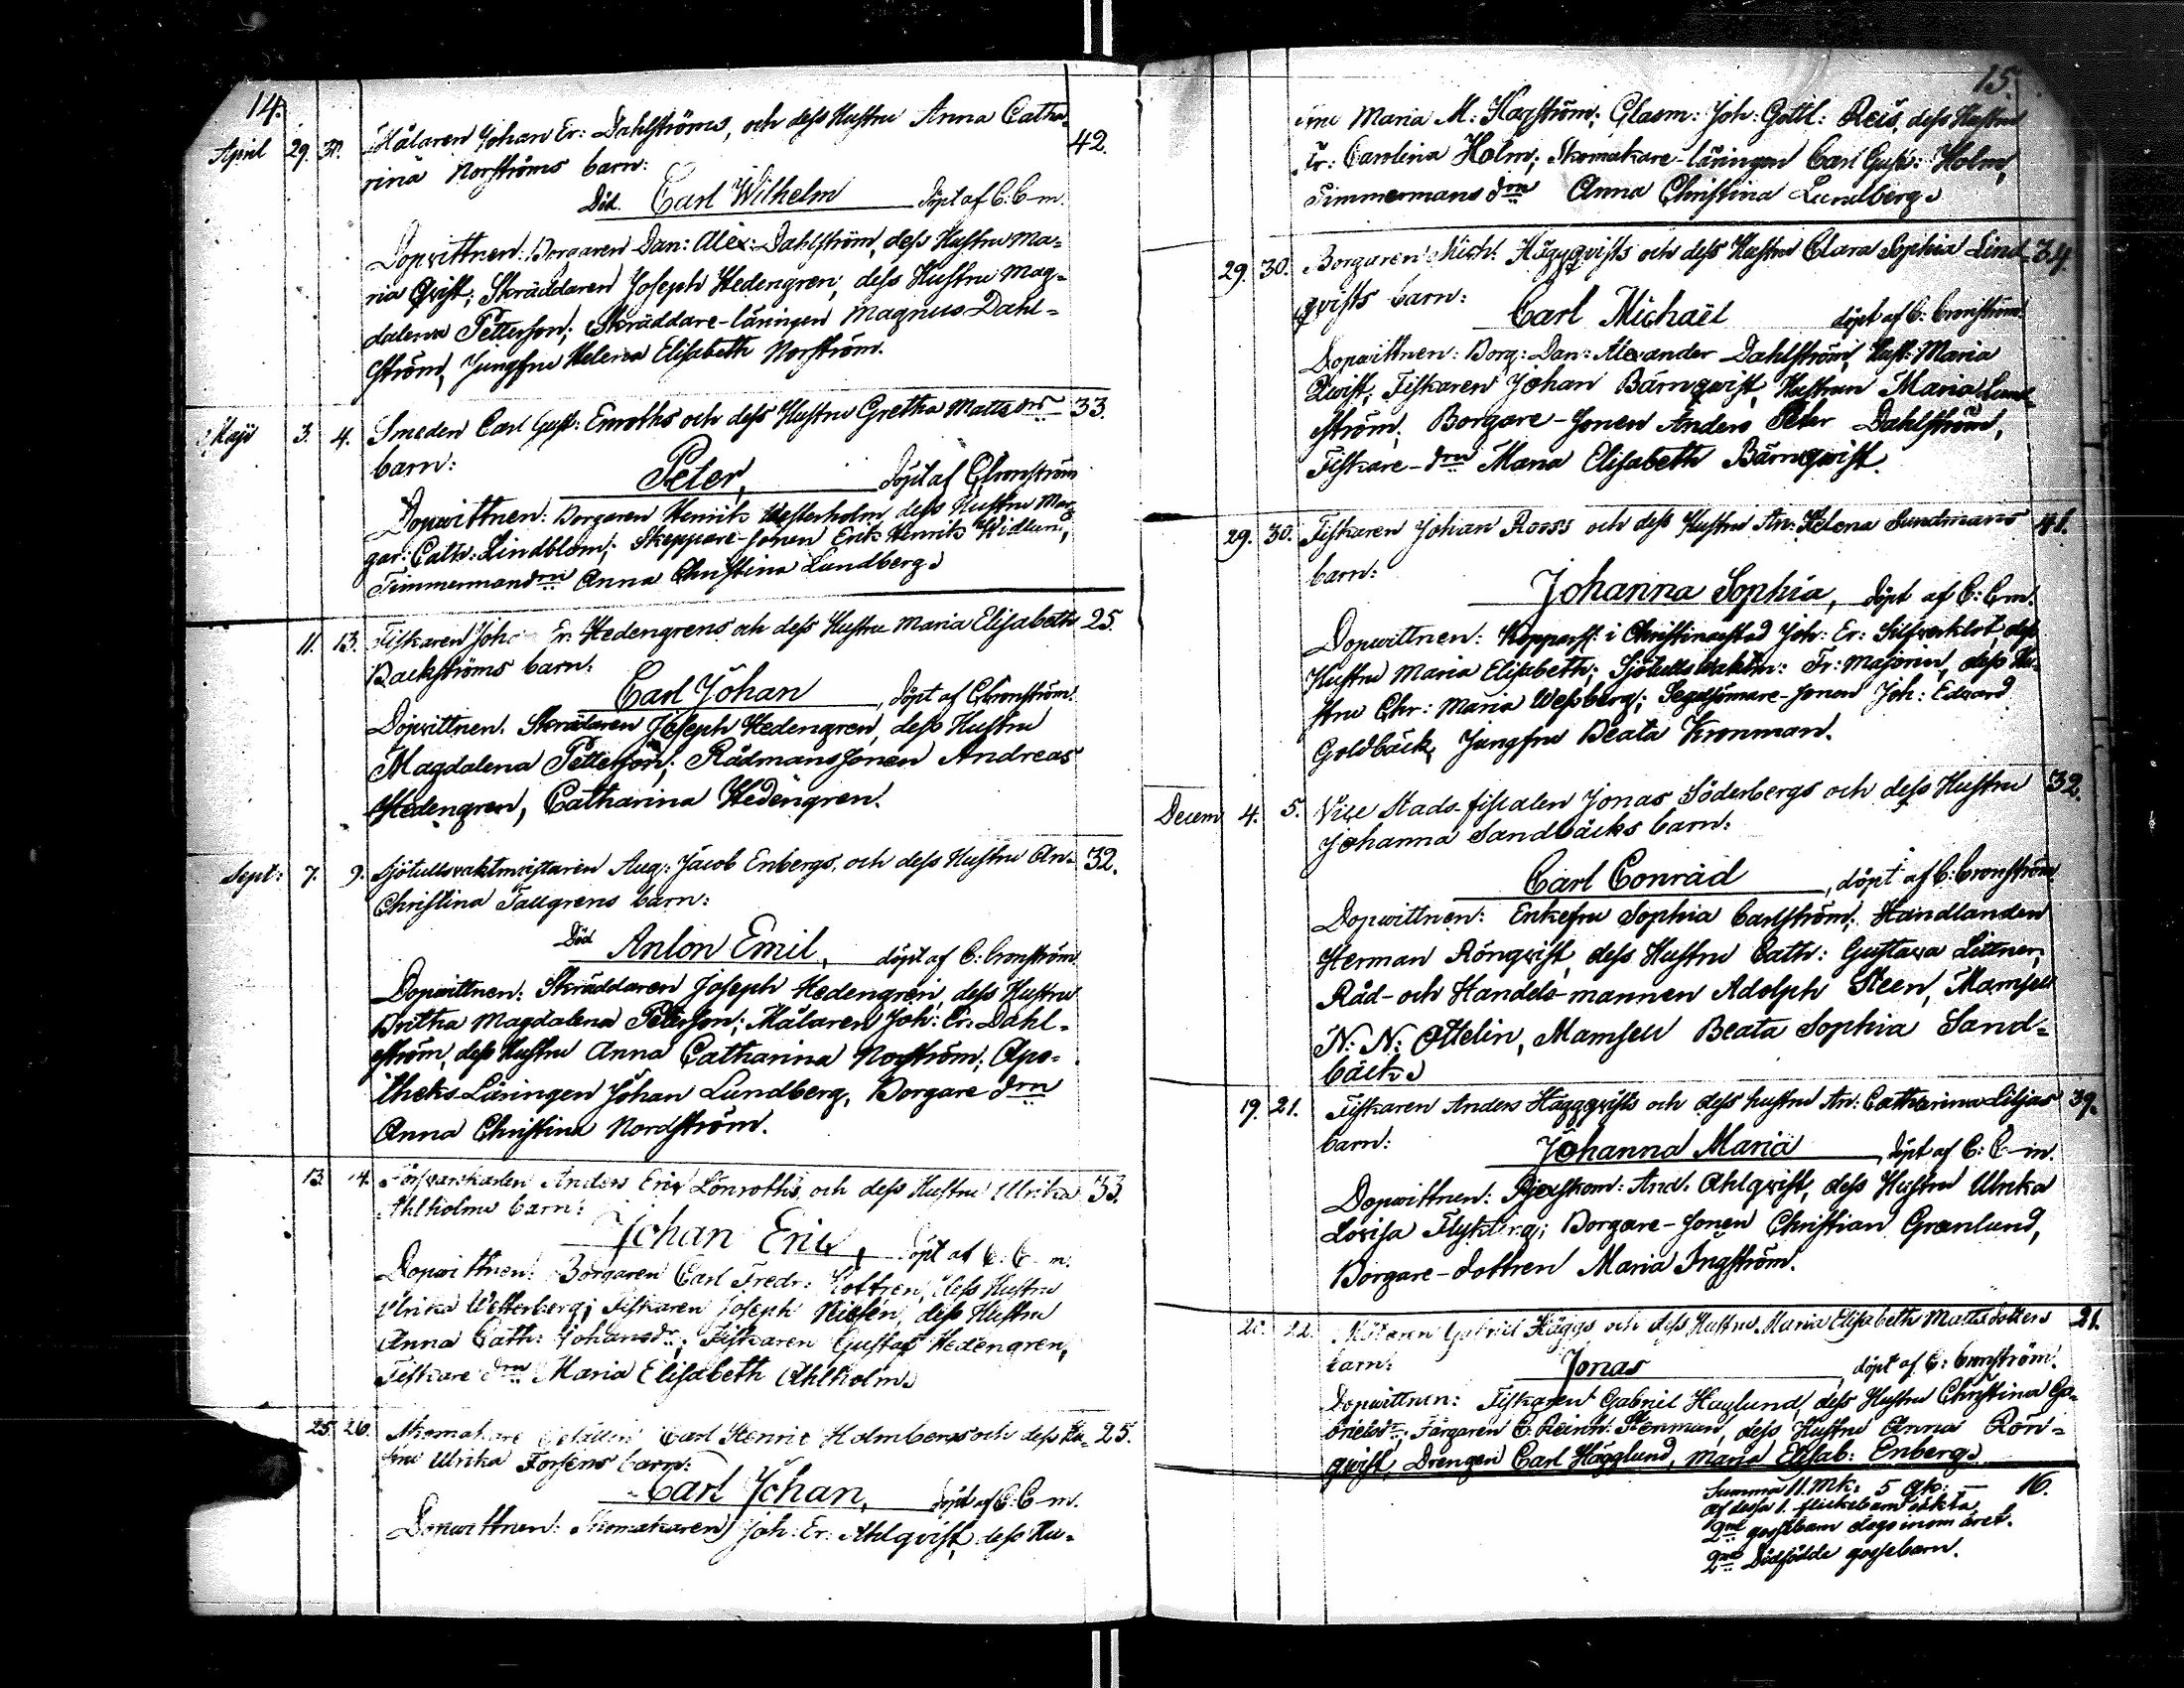 14.
April 29. 30. Målaren Johan Er: Dahlströms, och dess Hustru Anna Catha= 42.
rina Norströms barn:
Död. Carl Wilhelm döpt af C: C—m.
Dopvittnen: Borgaren Dan: Alex: Dahlström, dess Hustru Ma=
ria Qvist; Skräddaren Joseph Hedengren, dess Hustru Mag=
dalena Petterson; Skräddare-läringen Magnus Dahl=
ström, Jungfru Helena Elisabeth Norström.
Maji 3. 4. Smeden Carl Gust: Enroths och dess Hustru Gretha Mattsdrs 33.
barn:
Peter, döpt af C: Cronström
Dopwittnen: Borgaren Henrik Westerholm, dess Hustru Mar=
gar: Cath: Lindblom; Skeppare-sonen Erik Henrik Widlund,
Timmermandrn Anna Christina Lundberg.
11. 13. Fiskaren Joh Er: Hedengrens och dess Hustru Maria Elisabeth 25.
Backströms barn:
Carl Johan, döpt af C: Cronström.
Dopwittnen: Skrädaren Joseph Hedengren, dess Hustru
Magdalena Petterson; Rådmanssonen Andreas
Hedengren, Catharina Hedengren.
Sept: 7. 9. Sjötullsvaktmästaren Aug: Jacob Enbergs, och dess Hustru An: 32.
Christina Tallgrens barn:
Död Anton Emil, döpt af C: Cronström
Dopwittnen: Skräddaren Joseph Hedengren, dess Hustru
Britha Magdalena Peterson; Målaren Joh: Er: Dahl=
ström, dess Hustru Anna Catharina Norström; Apo=
theks-Läringen Johan Lundberg, Borgare drn
Anna Christina Nordström.
13. 14. Försvarskarlen Anders Eric Lönroths, och dess Hustru Ulrika 33.
Ahlholms barn:
Johan Eric, döpt af C: C—m.
Dopwittnen: Borgaren Carl Fredr: dess Hustru
Ulrika Wetterberg; Fiskaren Joseph Nissén, dess Hustru
Anna Cath: Johansdr; Fiskaren Gustaf Hedengren,
Fiskare drn Maria Elisabeth Ahlholm.
25. 26. Skomakare Gesällen Carl Henric Holmbergs och dess Hu= 25.
stru Ulrika Forsens barn:
Carl Johan, döpt af C: C—m.
Dopwittnen: Skomakaren Joh: Er: Ahlqvist, dess Hu=
15.
Maria M: Hagström; Glasm: Joh: Gottl: Reis, dess Hustru
Fr: Carolina Holm; Skomakare-läringen Carl Gust: Holm,
Timmermans drn Anna Christina Lundberg.
29. 30. Borgaren Mich: Häggqvists och dess Hustru Clara Sophia Lind= 34.
qvists barn:
Carl Michaël döpt af C: Cronström.
Dopwittnen: Borg: Dan: Alexander Dahlström, Hust: Maria
Qwist; Fiskaren Johan Bärnqwist, Hustrun Maria Lund=
ström; Borgare-sonen Anders Peter Dahlström,
Fiskare-drn Maria Elisabeth Bärnqwist.
29. 30. Fiskaren Johan Rooss och dess Hustru An: Helena Sundmans 41.
barn:
Johanna Sophia, döpt af C: C—m.
Dopwittnen: i Christinæstad Joh: Er: Silfverklot, dess
Hustru Maria Elisabeth; Sjötullsvaktm: Fr: Majorin, dess Hu=
stru Chr: Maria Wessberg; Segelsömare-sonen Joh: Edvard
Goldbäck, Jungfru Beata Kronman.
Decem 4. 5. Vice Stads-fiscalen Jonas Söderbergs och dess Hustru 32.
Johanna Sandbäcks barn:
Carl Conrad, döpt af C: Cronström.
Dopwittnen: Enkefru Sophia Carlström; Handlanden
Herman Rönqvist, dess Hustru Cath: Gustava Littner;
Råd- och Handels-mannen Adolph Steen, Mamsell
N: N: Ottelin, Mamsell Beata Sophia Sand=
bäck.
19. 21. Fiskaren Anders Häggqvists och dess hustru An: Catharina Liljas 39.
barn:
Johanna Maria döpt af C: C—m.
Dopwittnen: And: Ahlqvist, dess Hustru Ulrika
Lovisa Flyktberg; Borgare-sonen Christian Grœnlund,
Borgare-dottren Maria Ingström.
22. Gabriel Häggs och dess Hustru Maria Elisabeth Mattsdotters 21.
barn:
Jonas döpt af C: Cronström.
Dopwittnen: Fiskaren Gabriel Haglund, dess Hustru Christina Ga=
brielsdr; Färgaren C: Reinh: Stenman, dess Hustru Anna Rön=
qwist, Drengen Carl Hägglund, Maria Elisab: Enberg.
Summa 11. Mk: 5 Qk: — 16.
Af dessa 1. flickebarn oäkta
2ne gossebarn dogo inom året.
2ne Dödfödde gossebarn.